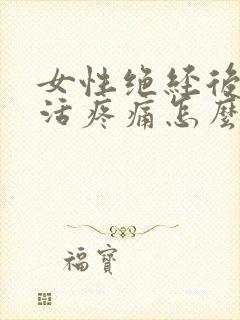 女性绝经後
活疼痛怎麼
福寶